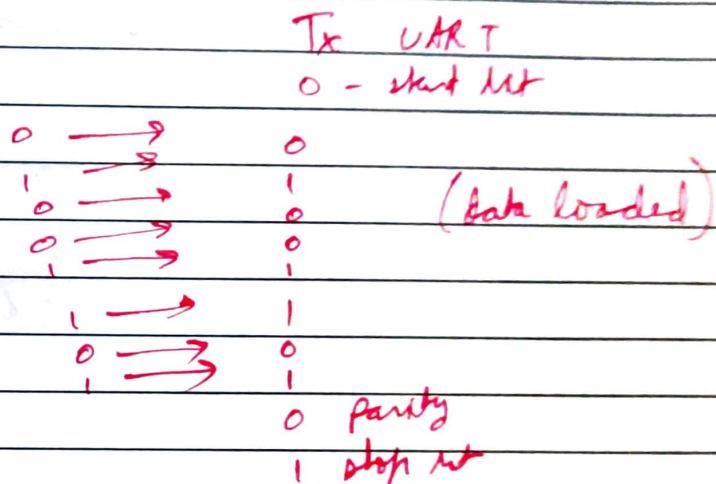 Tx UART
0 - start bit
0 → 0
1 → 1
0 → 0 (data loaded)
0 → 0
1 → 1
1 → 1
0 → 0
1 → 1
0 parity
1 stop bit